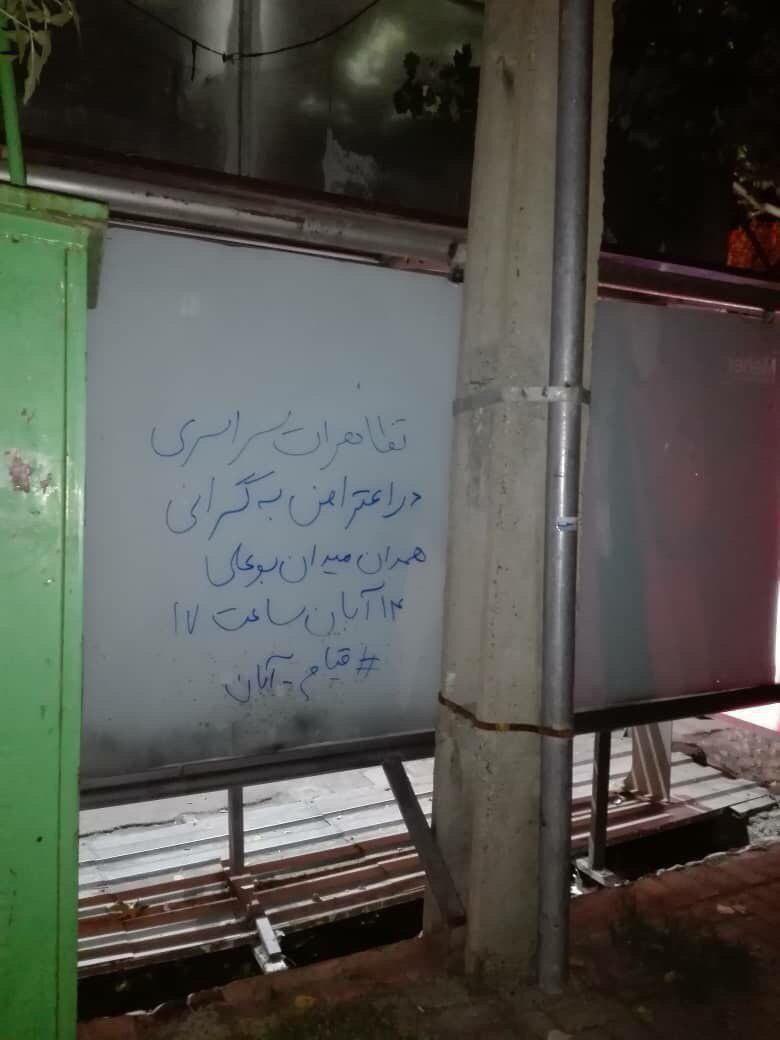 تظاهرات سراسری
در اعتراض به گرانی
همدان میدان بوعلی
۱۴ آبان ساعت ۱۷
#قیام-آبان
Meher